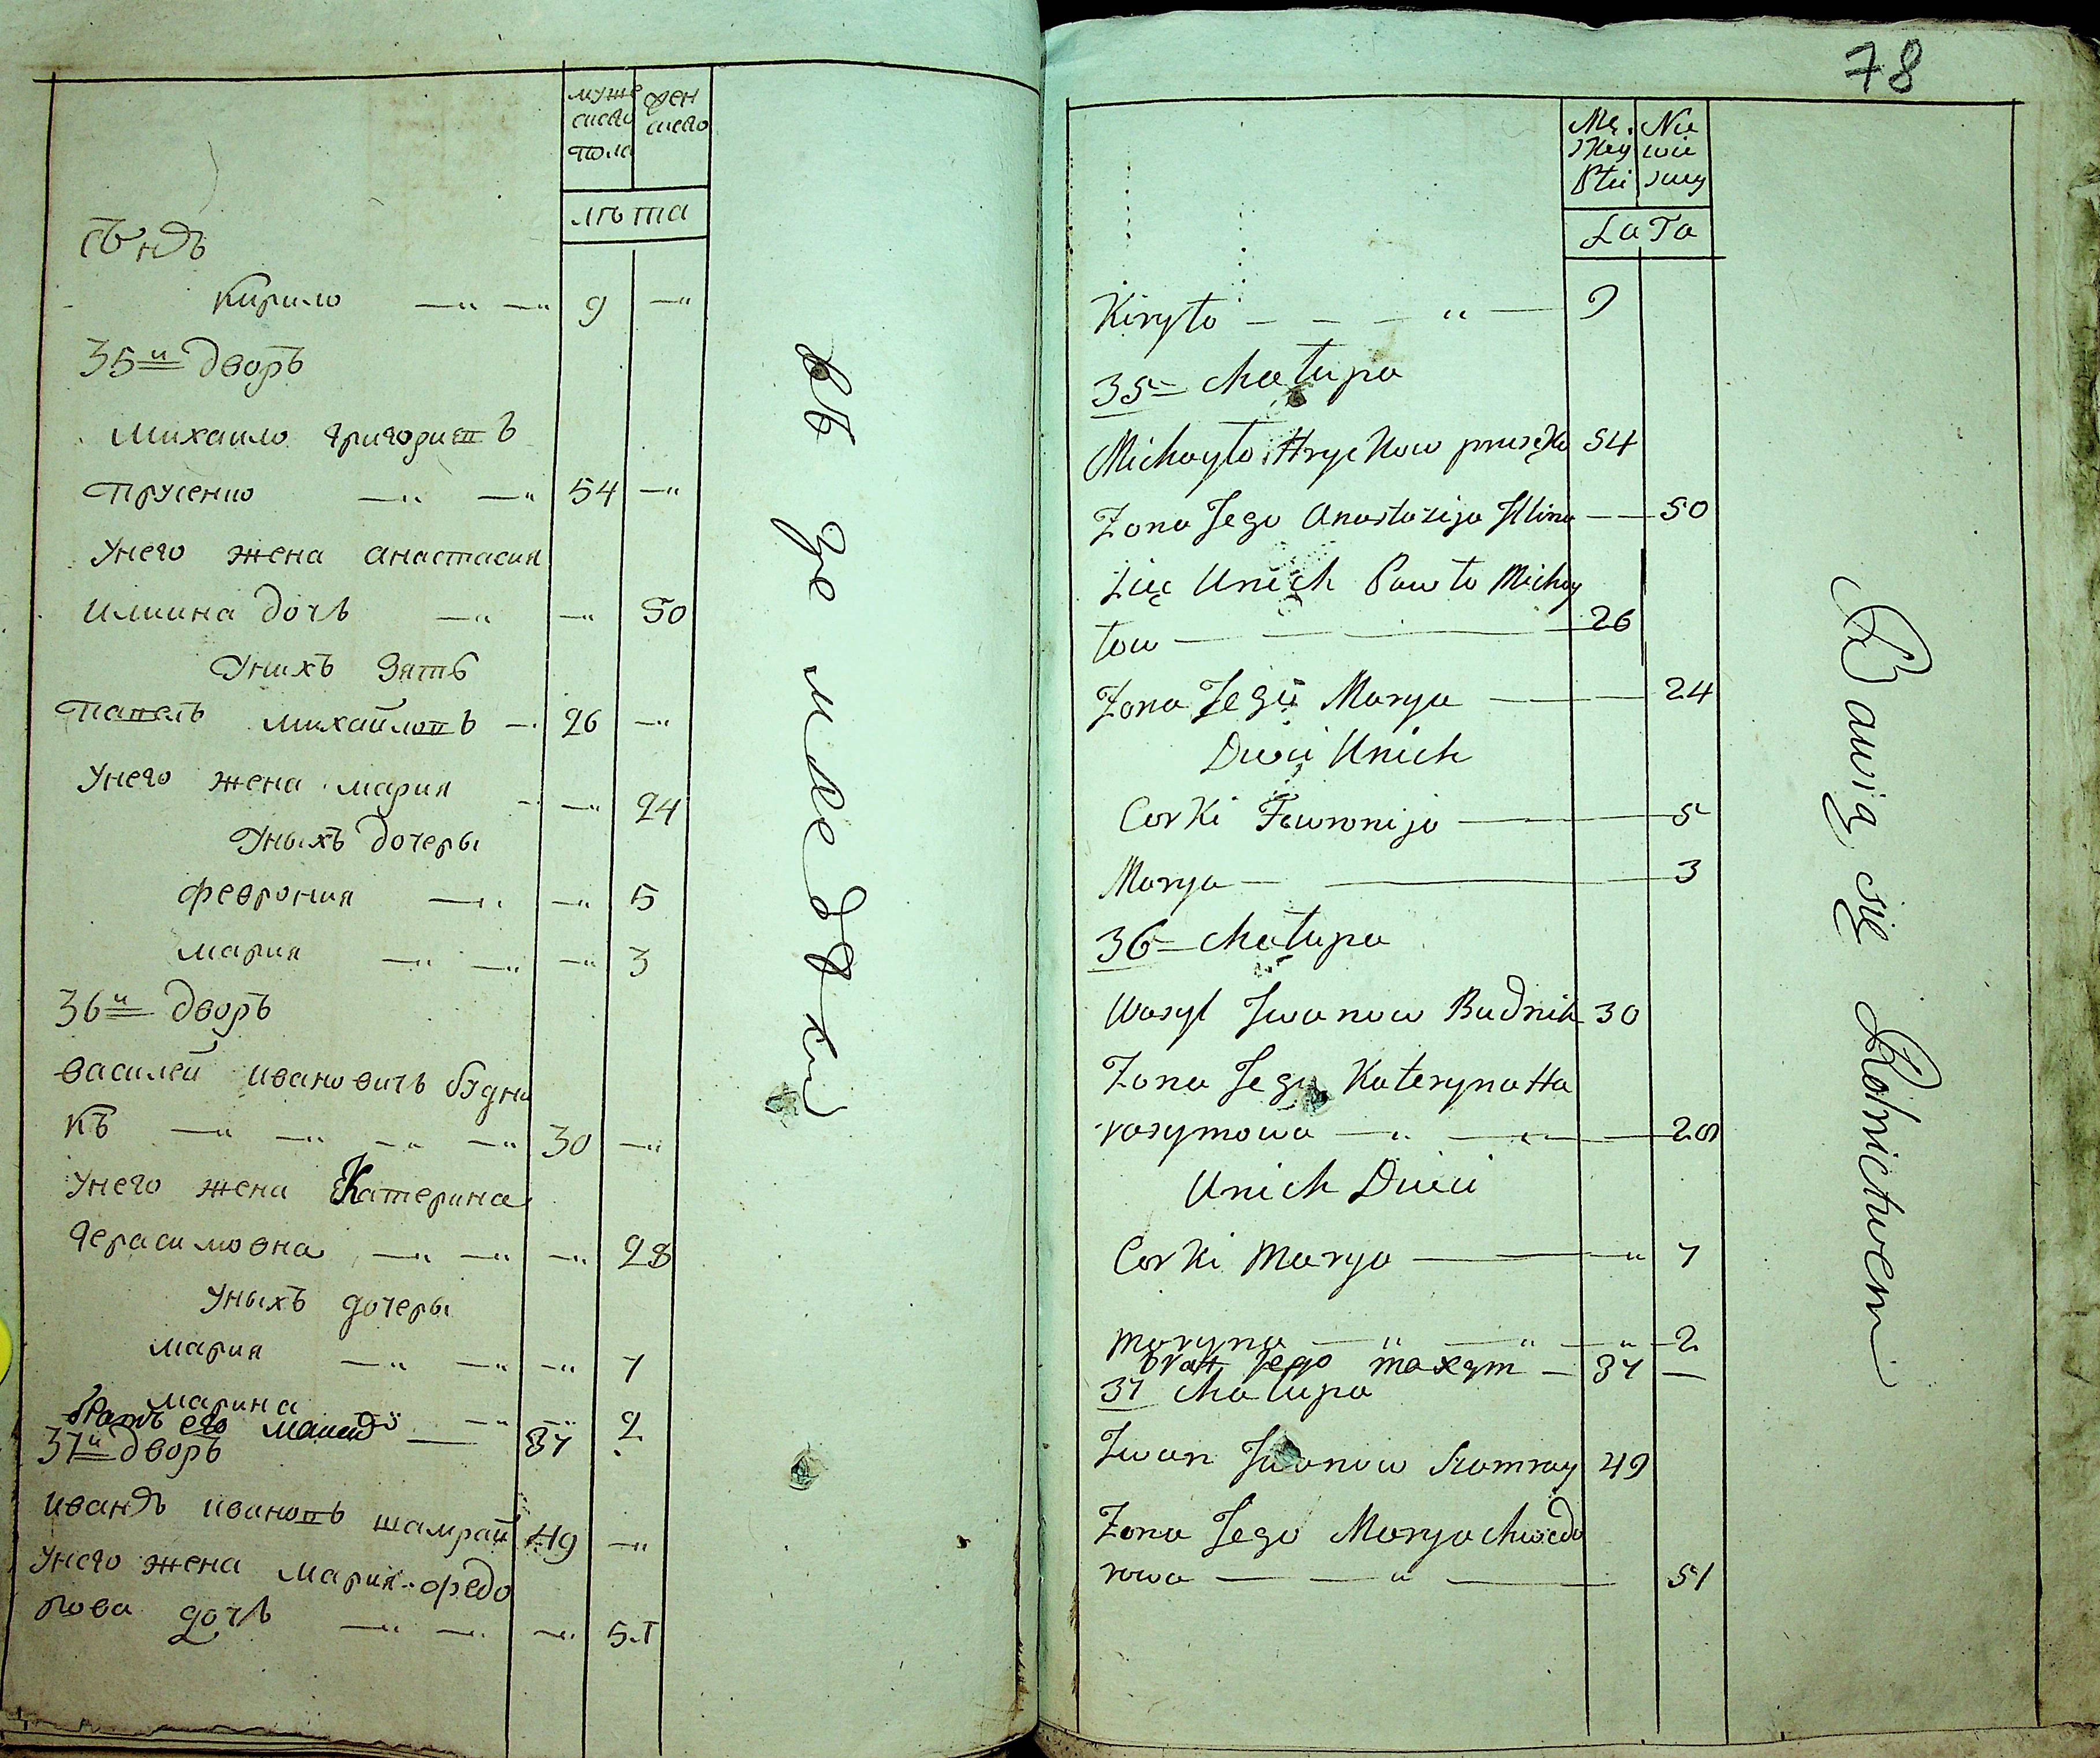 муже
ского
пола
жен
ского
лѣта
сынъ
Кирило 9
35й дворъ
михаило григориевъ
Прусенко 54
Унего жена анастасия
илиина дочь 50
Унихъ зять
Павелъ михайловъ 26
Унего жена мария 24
Уныхъ дочеры
феврония 5
мария 3
36й дворъ
василей ивановичъ будни
къ 30
Унего жена Катерина
герасимовна 28
Уныхъ дочеры
мария 7
марина 2
братъ его 37
37й дворъ
иванъ ивановъ шамрай 49
Унего жена мария федо
рова дочь 51
78
Mę.
skey
Płci
Nie
wie
sciey
LaTa
Kiryło 9
35 Chałupa
Michayło Hryckow prusęko 54
Żona Jego Anastazija Illina 50
Zięć Unich Pawło Michay
łow 26
Żona Jego Marya 24
Dwi Unich
Corki Fewronija 5
Marya 3
36 Chałupa
Wasyl Jwanow Budnik 30
Żona Jego Kateryna Ha
rasymowa 28
Unich Dwi
Corki Marya 7
Maryna 2
brat jego maxym 37
37 Chałupa
Iwan Jwanow Szamray 49
Żona Jego Marya Chwedo
rowa 51
Bawią się Rolnictwem